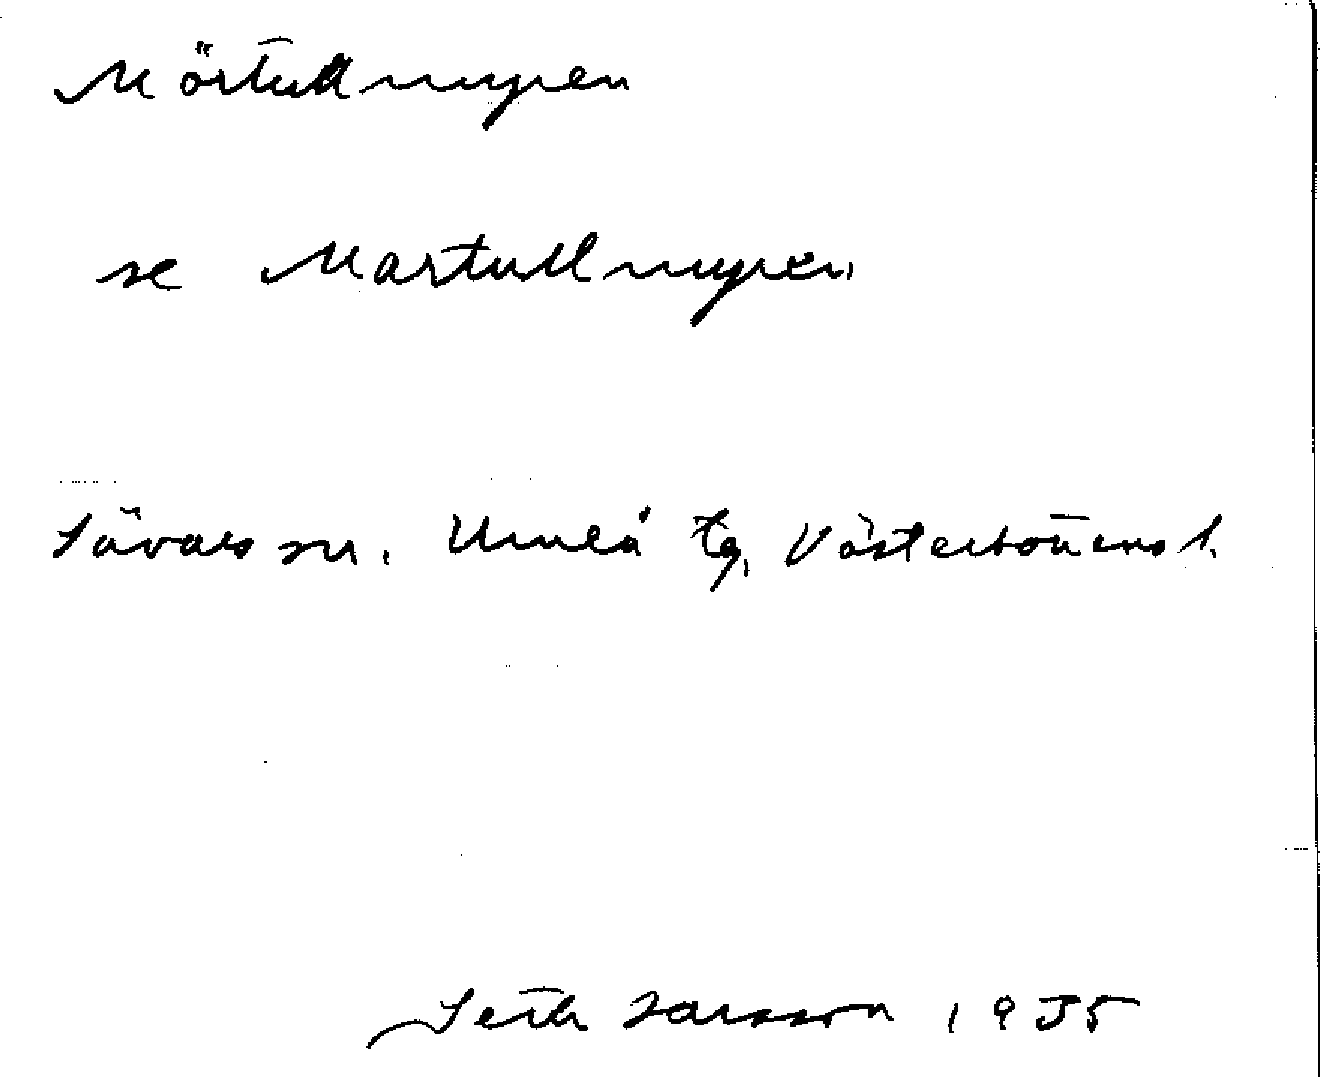 Mörtullmyren
se Martullmyren
Sävars sn. Umeå tg, Västerbottens l.
Seth Larsson 1935